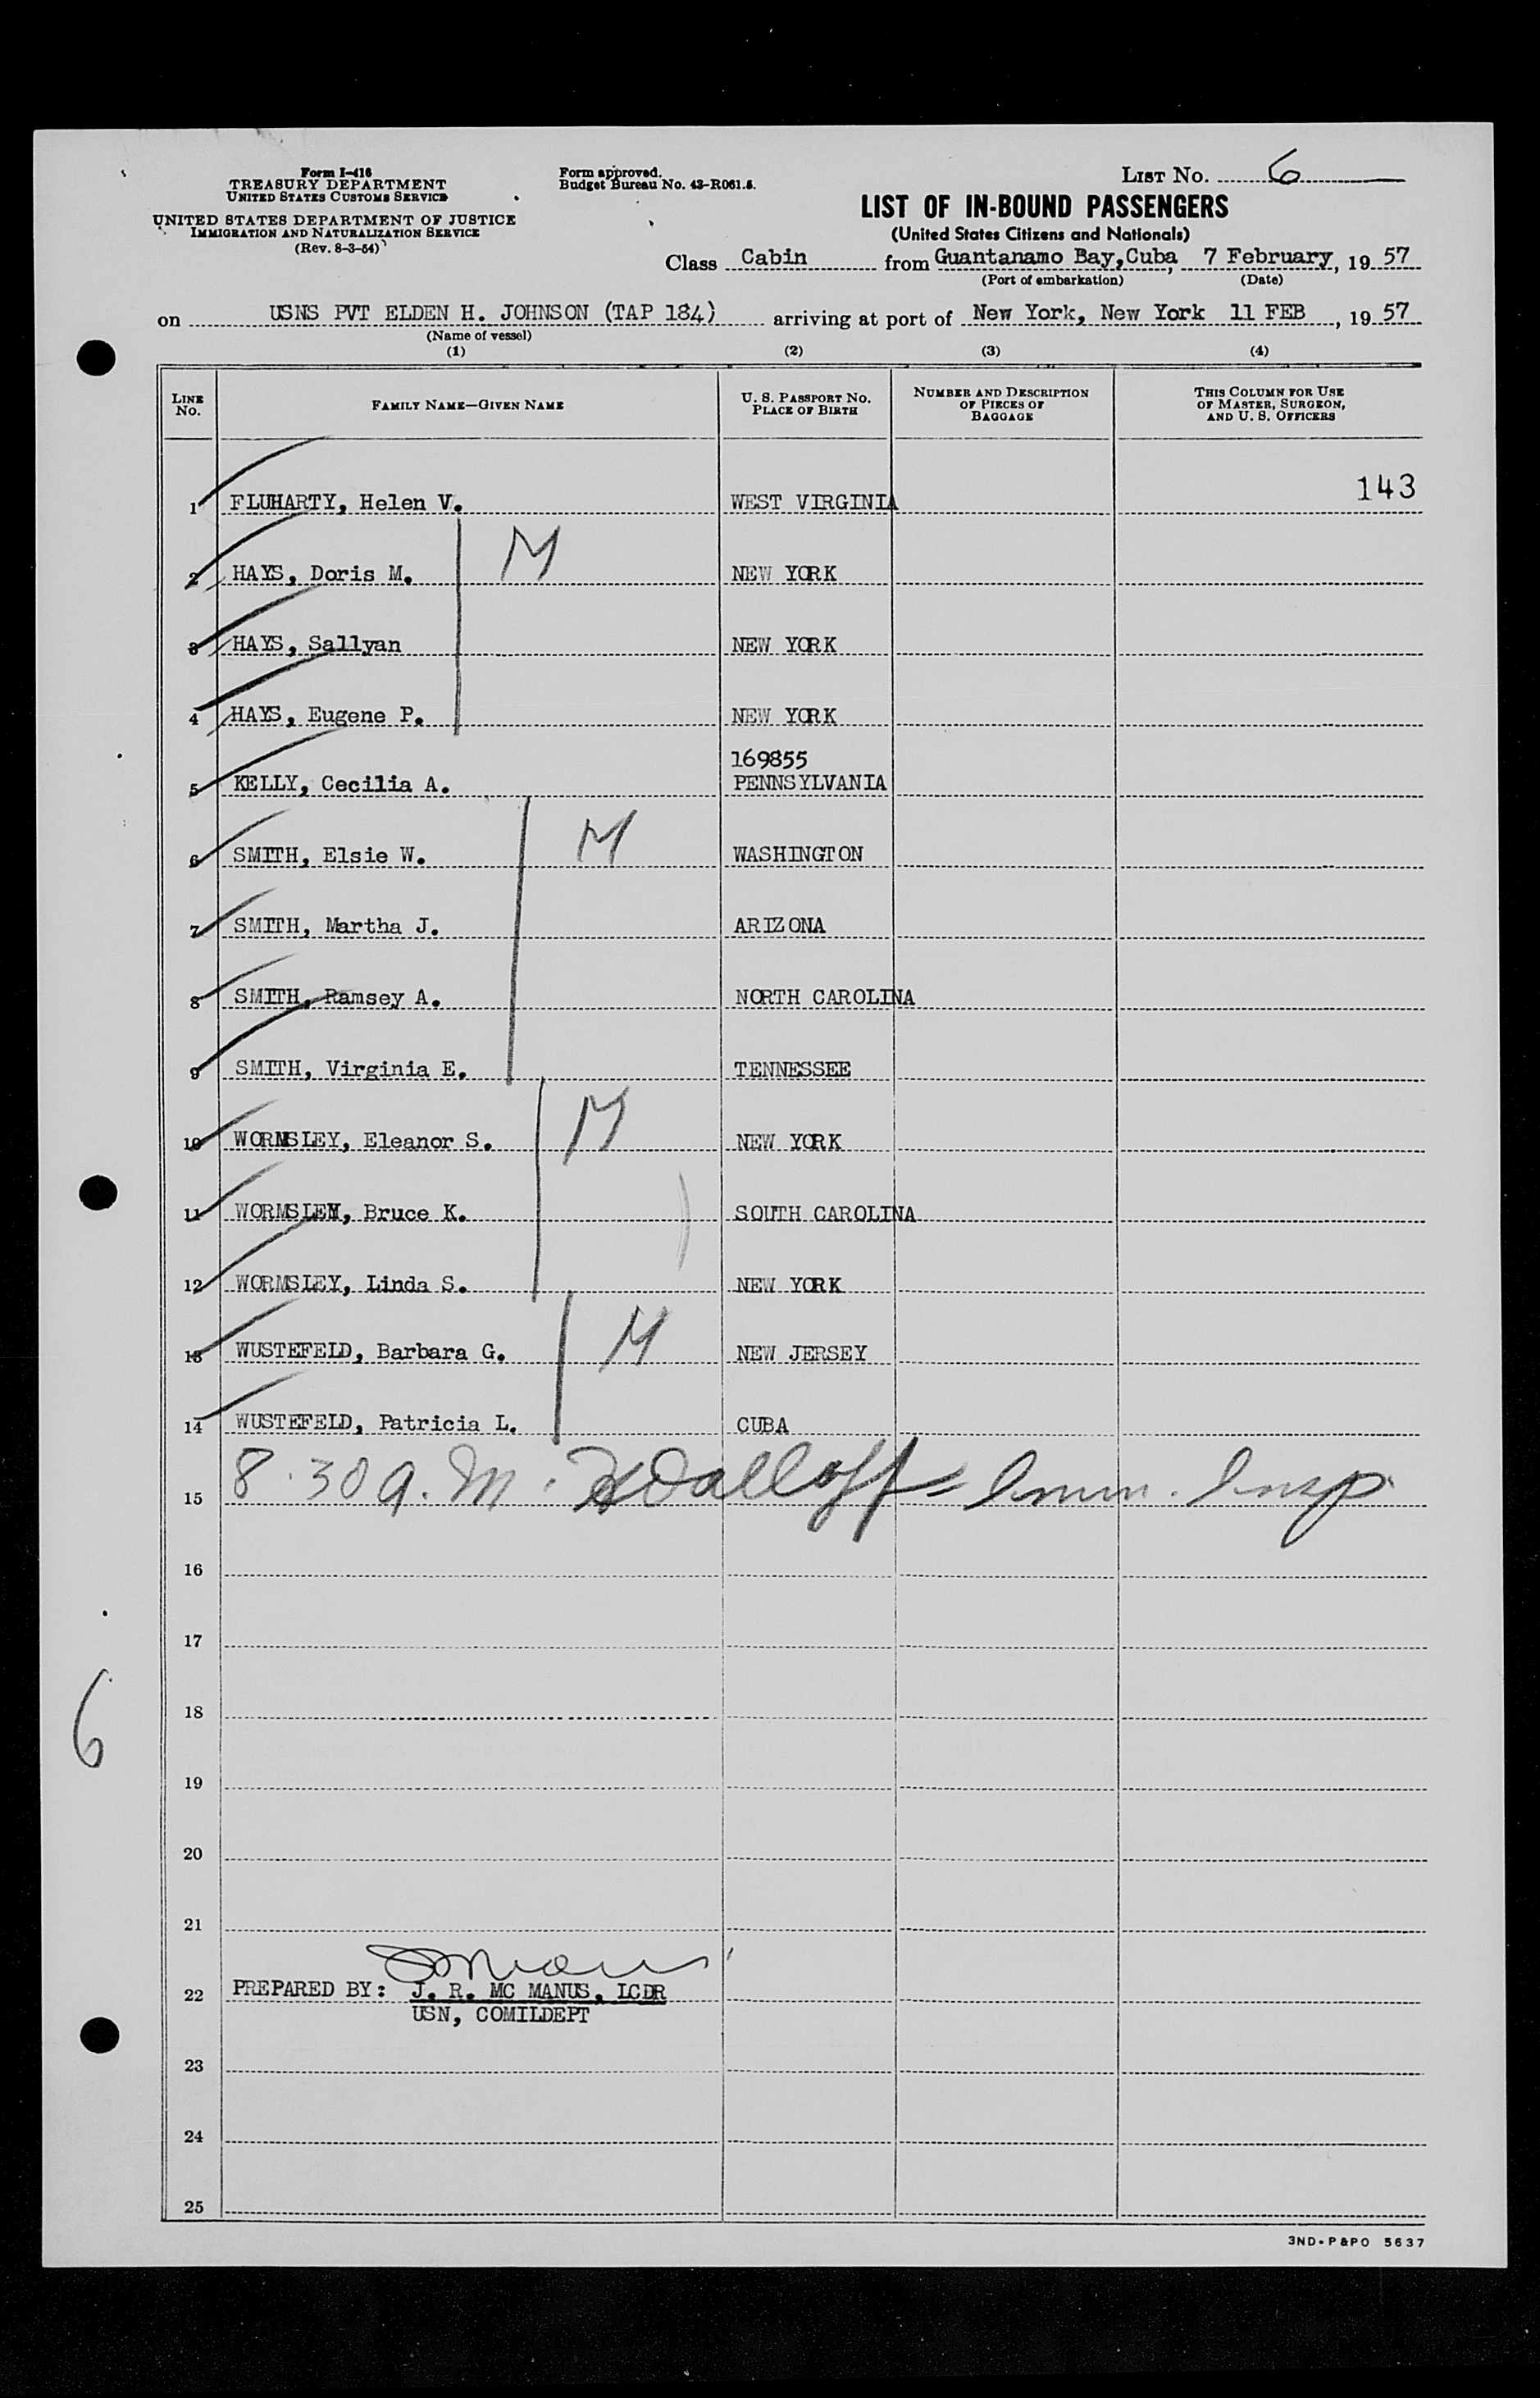 Form I-416
TREASURY DEPARTMENT
UNITED STATES CUSTOMS SERVICE
UNITED STATES DEPARTMENT OF JUSTICE
IMMIGRATION AND NATURALIZATION SERVICE
(Rev. 8-3-54)
Form approved.
Budget Bureau No. 43-R061.5.
LIST NO. 6
LIST OF IN-BOUND PASSENGERS
(United States Citizens and Nationals)
Class Cabin from Guantanamo Bay, Cuba, 7 February, 19 57
(Port of embarkation) (Date)
on USNS PVT ELDEN H. JOHNSON (TAP 184) arriving at port of New York, New York 11 FEB, 19 57
(Name of vessel)
(1) (2) (3) (4)
LINE NO. FAMILY NAME—GIVEN NAME U. S. PASSPORT NO. PLACE OF BIRTH NUMBER AND DESCRIPTION OF PIECES OF BAGGAGE THIS COLUMN FOR USE OF MASTER, SURGEON, AND U. S. OFFICERS
1 FLUHARTY, Helen V. WEST VIRGINIA 143
2 HAYS, Doris M. M NEW YORK
3 HAYS, Sallyan NEW YORK
4 HAYS, Eugene P. NEW YORK
169855
5 KELLY, Cecilia A. PENNSYLVANIA
6 SMITH, Elsie W. M WASHINGTON
7 SMITH, Martha J. ARIZONA
8 SMITH, Ramsey A. NORTH CAROLINA
9 SMITH, Virginia E. TENNESSEE
10 WORMSLEY, Eleanor S. M NEW YORK
11 WORMSLEY, Bruce K. SOUTH CAROLINA
12 WORMSLEY, Linda S. NEW YORK
13 WUSTEFELD, Barbara G. M NEW JERSEY
14 WUSTEFELD, Patricia L. CUBA
15 8.30 a.m. Imm. Insp.
16
17
18
6
19
20
21
22 PREPARED BY: J. R. MC MANUS, LCDR
USN, COMILDEPT
23
24
25
3ND-P&PO 5637